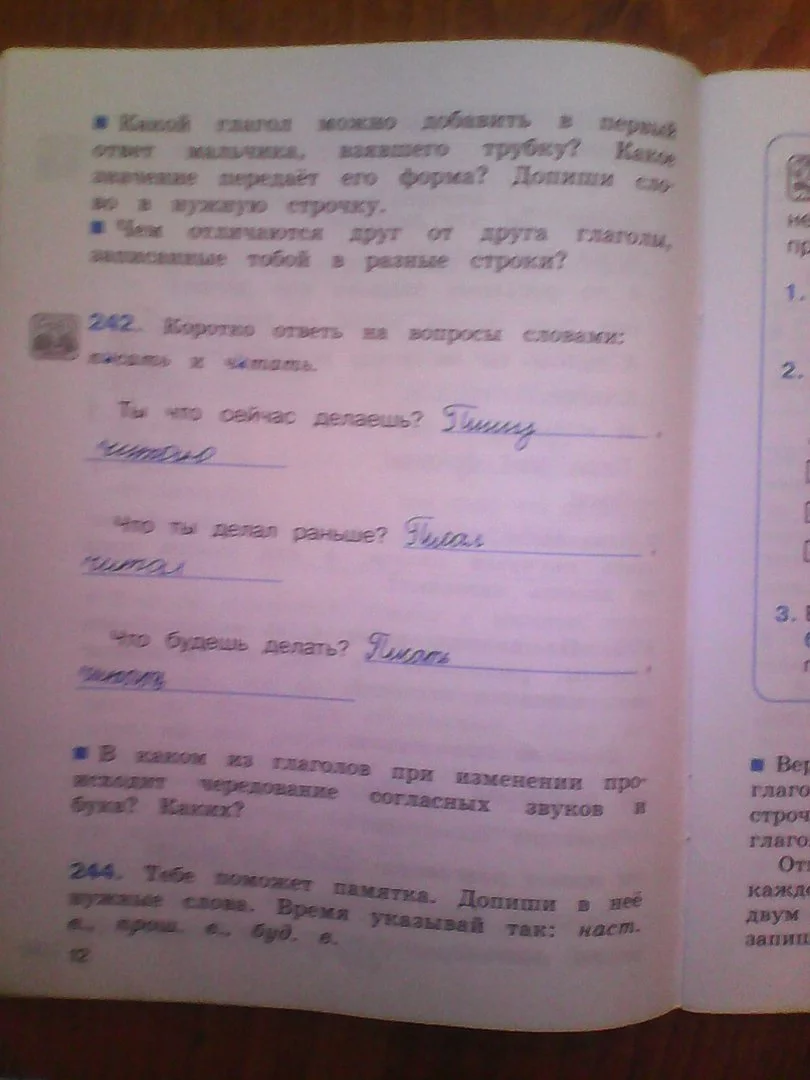 Какой глагол можно добавить в первый
ответ мальчика, взявшего трубку? Какое
значение передаёт его форма? Допиши сло-
во в нужную строчку.
Чем отличаются друг от друга глаголы,
записанные тобой в разные строки?
242. Коротко ответь на вопросы словами:
писать и читать.
Ты что сейчас делаешь? Пишу
читаю
Что ты делал раньше? Писал
читал
Что будешь делать? Писать
В каком из глаголов при изменении про-
исходит чередование согласных звуков и
букв? Каких?
244. Тебе поможет памятка. Допиши в неё
нужные слова. Время указывай так: наст.
в., прош. в., буд. в.
12
не
пр
1.
2.
3.
Вер
глаго
строч
глаго
От
кажд
двум
запиш